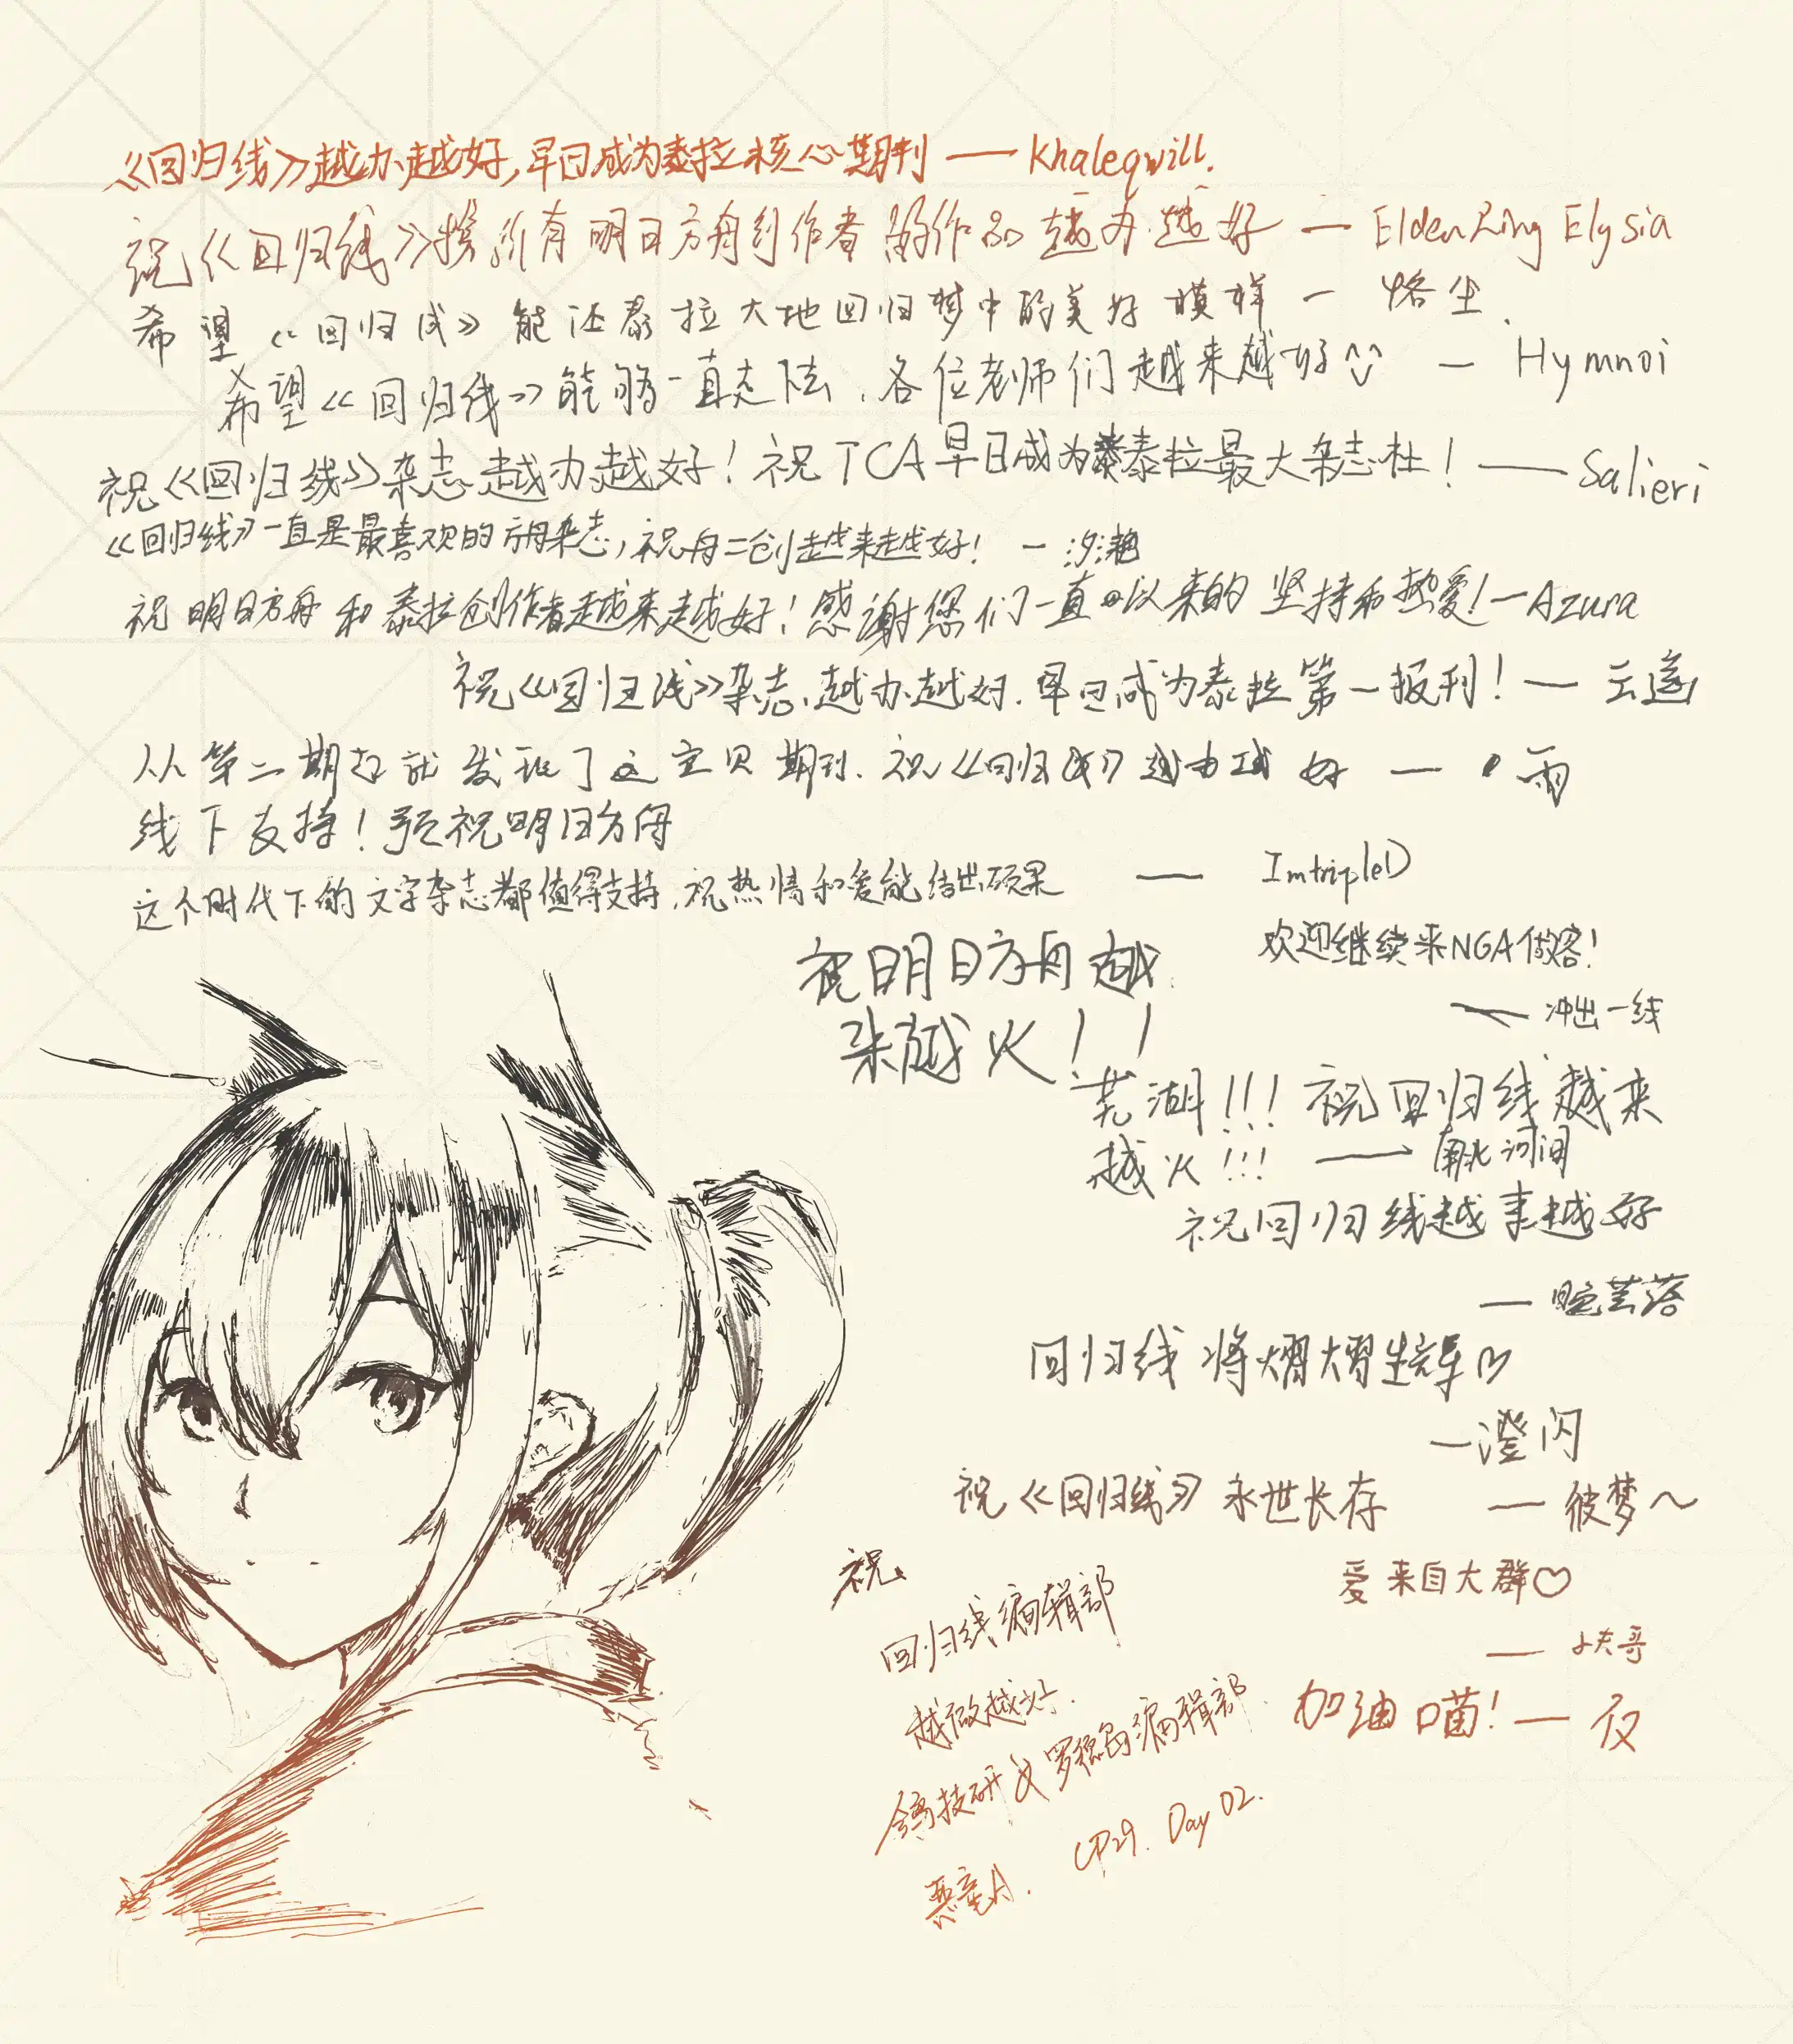 《回归线》越办越好,早日成为泰拉核心期刊 —— Khaleqwill.
祝《回归线》携所有明日方舟创作者的作品越办越好 — Elden Ring Elysia
希望《回归线》能还泰拉大地回归梦中的美好模样 — 烙尘.
希望《回归线》能够一直走下去,各位老师们越来越好 — Hymnoi
祝《回归线》杂志越办越好!祝TCA早日成为泰拉最大杂志社!—— Salieri
《回归线》一直是最喜欢的方舟杂志,祝舟二创越来越好! — 汐
祝明日方舟和泰拉创作者越来越好!感谢您们一直以来的坚持和热爱!—Azura
祝《回归线》杂志越办越好.早日成为泰拉第一报刊!— 云遥
从第二期起就发现了这宝贝期刊.祝《回归线》越办越好 — 雨
线下支持!预祝明日方舟
这个时代下的文字杂志都值得支持,祝热情和爱能结出硕果 —— ImtripleD
欢迎继续来NGA做客!
—— 冲出一线
祝明日方舟越
来越火!!
芜湖!!!祝回归线越来
越火!!! —— 南北河间
祝回归线越来越好
— 暄芸落
回归线将熠熠生辉♡
—澄闪
祝《回归线》永世长存 — 彼梦~
爱来自大群♡
— 小夫哥
加油喵!— 仅
祝
回归线编辑部
越做越好.
鸽技研&罗德岛编辑部.
CP29. Day 02.